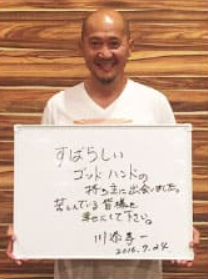 すばらしい
ゴッドハンドの
持ち主に出会いました。
苦しんでいる皆様を
幸せにして下さい。
川添孝一
2016.7.24